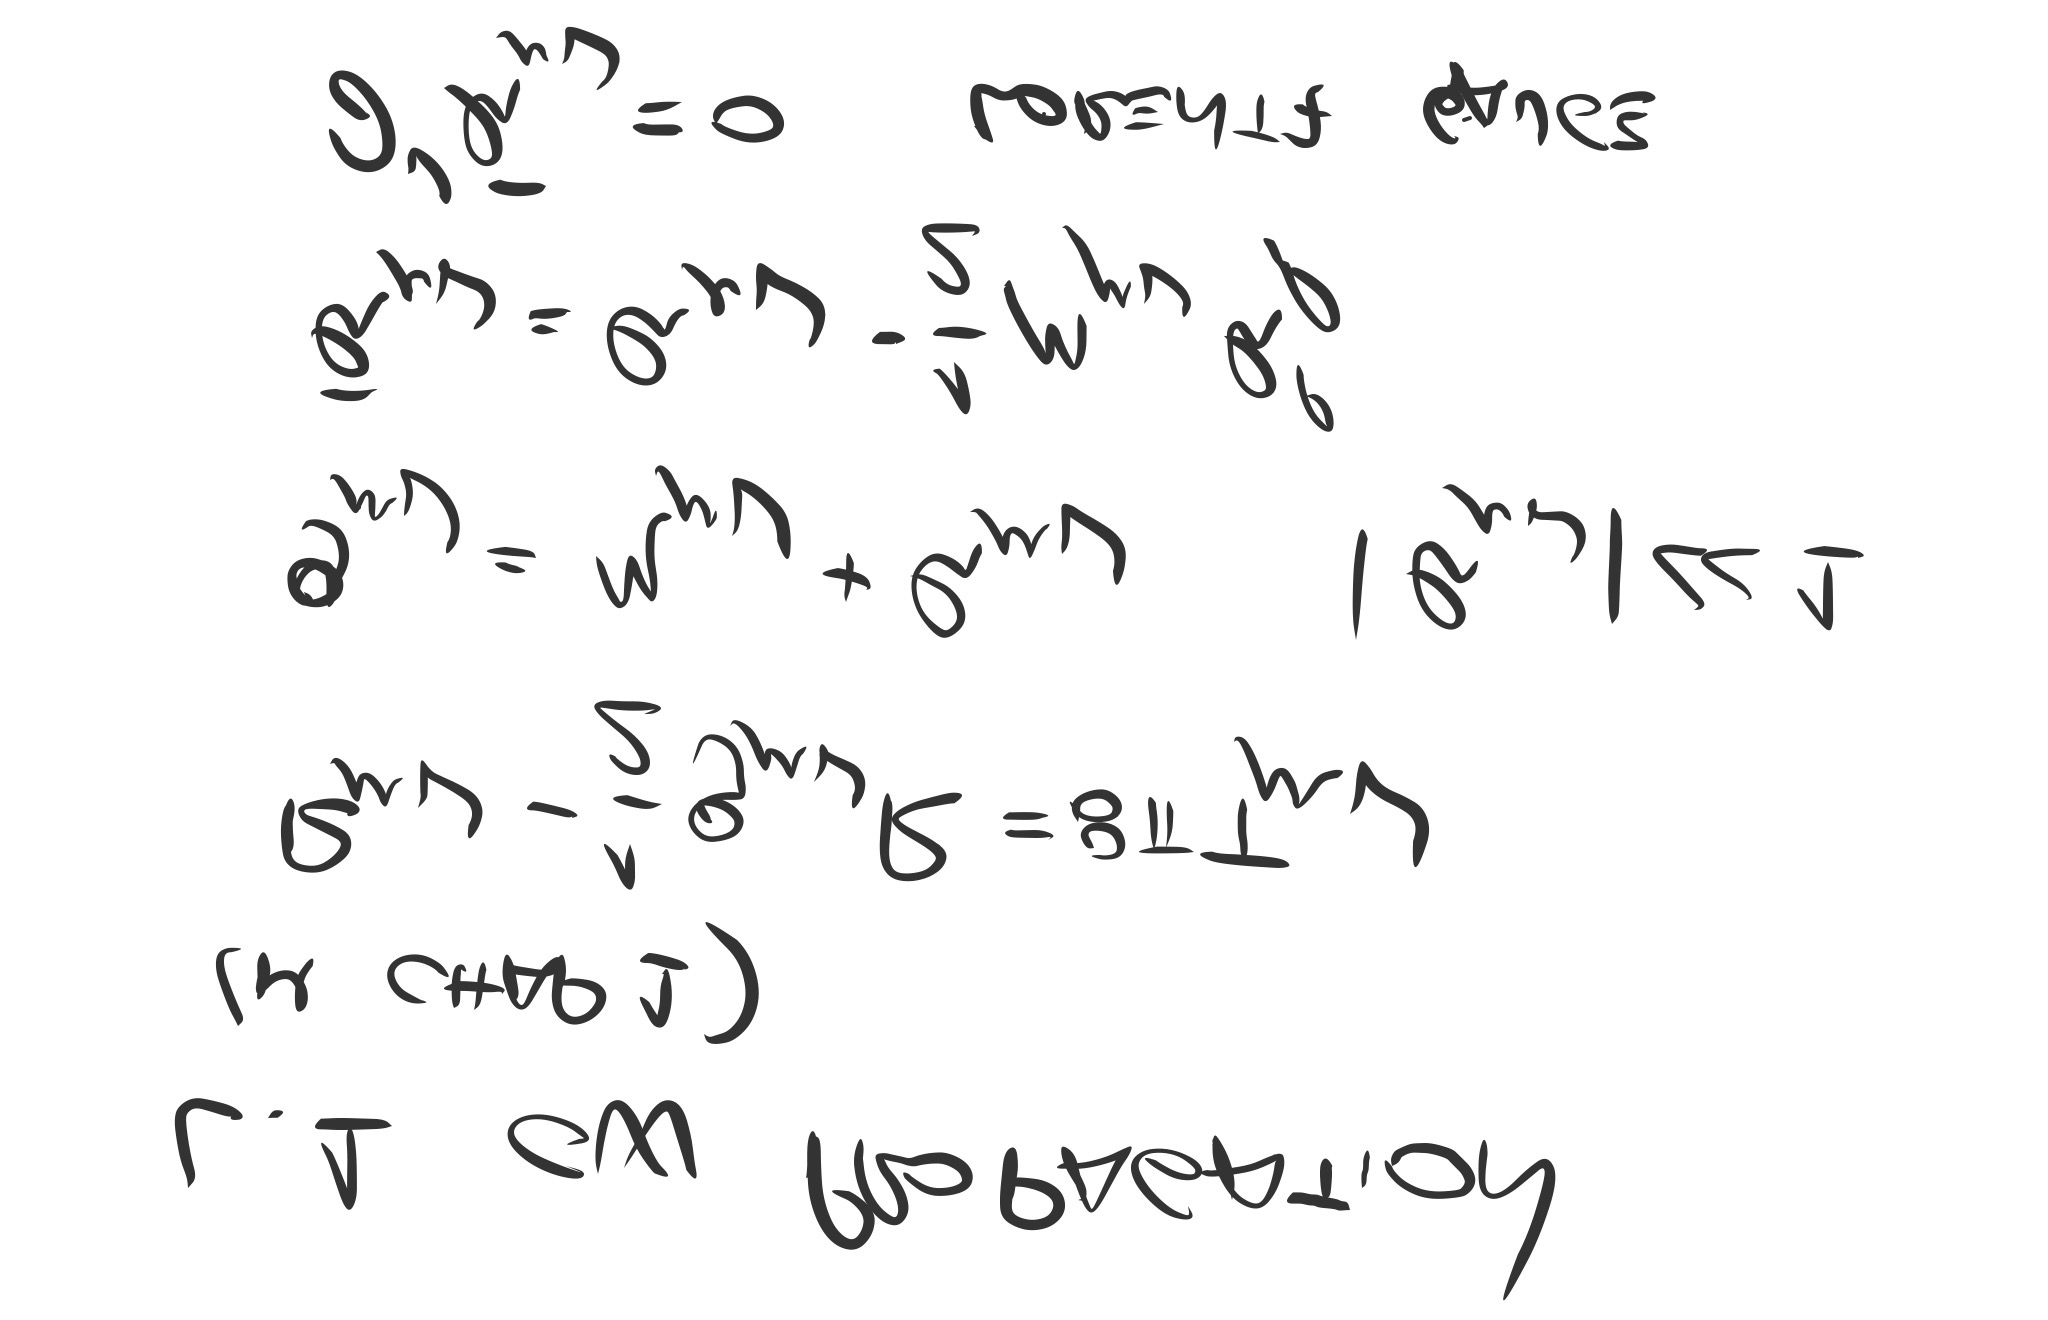 L.1 GW PROPAGATION
(M CHAP 1)
R_μν - 1/2 g_μν R = 8π T_μν
g_μν = η_μν + h_μν |h_μν| << 1
h̄_μν = h_μν - 1/2 η_μν h^ρ_ρ
∂^ν h̄_μν = 0 LORENTZ GAUGE